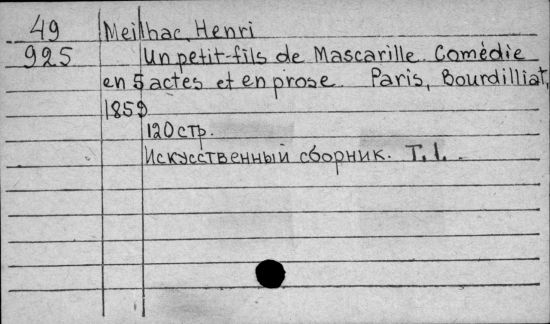 49 Meilhac, Henri
925 Un petit-fils de Mascarille. Comédie
en 5 actes et en prose. Paris, Bourdilliat,
1859
120 стр.
Искусственный сборник. Т. I.